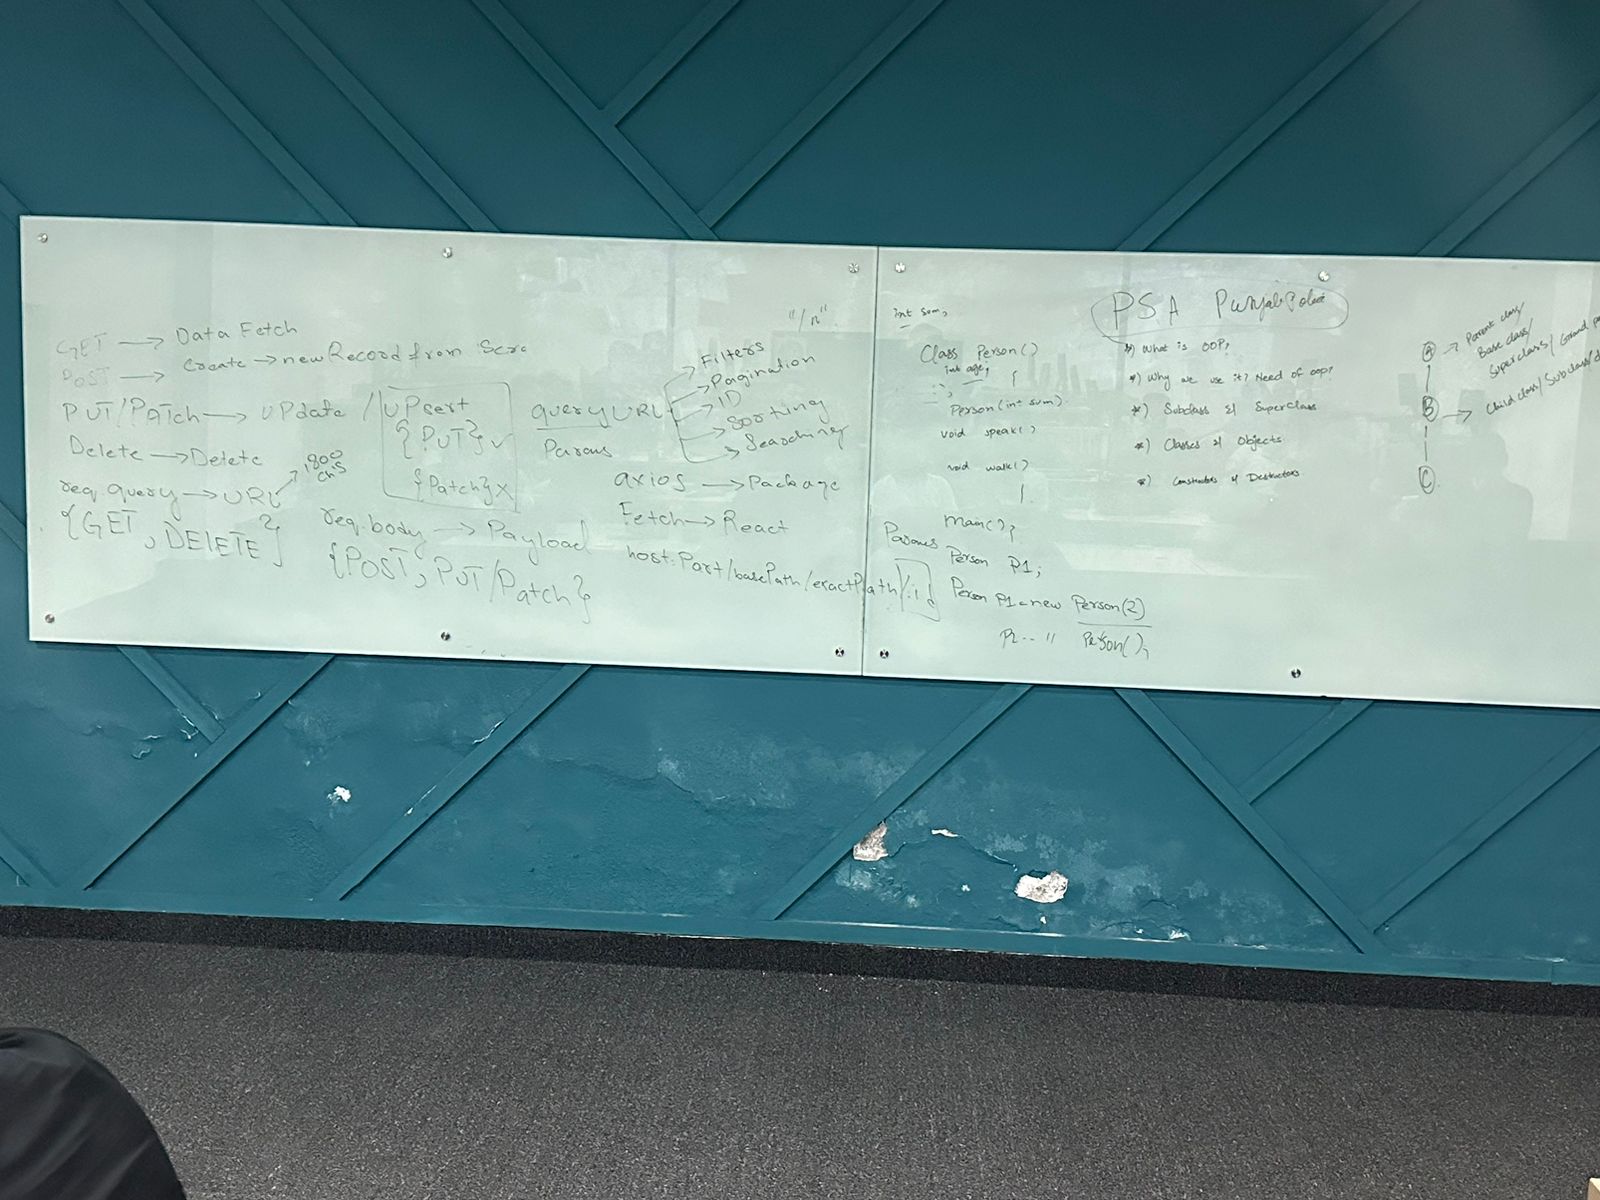 GET → Data Fetch
POST → Create → new Record from Scra
PUT/PATch → UPdate / UPsert
{PUT} ✓
{Patch} X
Delete → Delete
req.query → URL → 1800 chs
{GET, DELETE}
req.body → Payload
{POST, PUT/Patch}
"/n"
query URL
Params
→ Filters
→ Pagination
→ ID
→ Sorting
→ Searching
axios → Package
Fetch → React
host:Port/basePath/exactPath/:id
Params
int sum,
Class Person()
int age; {
Person(int sum).
void speak()
void walk()
}
main();
Person P1;
Person P1 = new Person(2)
" Person();
PSA
*) What is OOP?
*) Why we use it? Need of oop?
*) Subclass & Superclass
*) Classes & Objects
*) Constructors & Destructors
A → Parent class/
Base class/
Superclass/ Grand
B → Child class/Subclass/
C